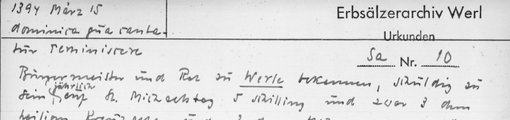 1394 März 15
dominica qua canta-
tur Reminiscere
Erbsälzerarchiv Werl
Urkunden
Sa Nr. 10
Bürgermeister und Rat zu Werle bekennen, schuldig zu
sein jährlich auf St. Michaelstag 5 schilling und zwar 3 dem
heiligen